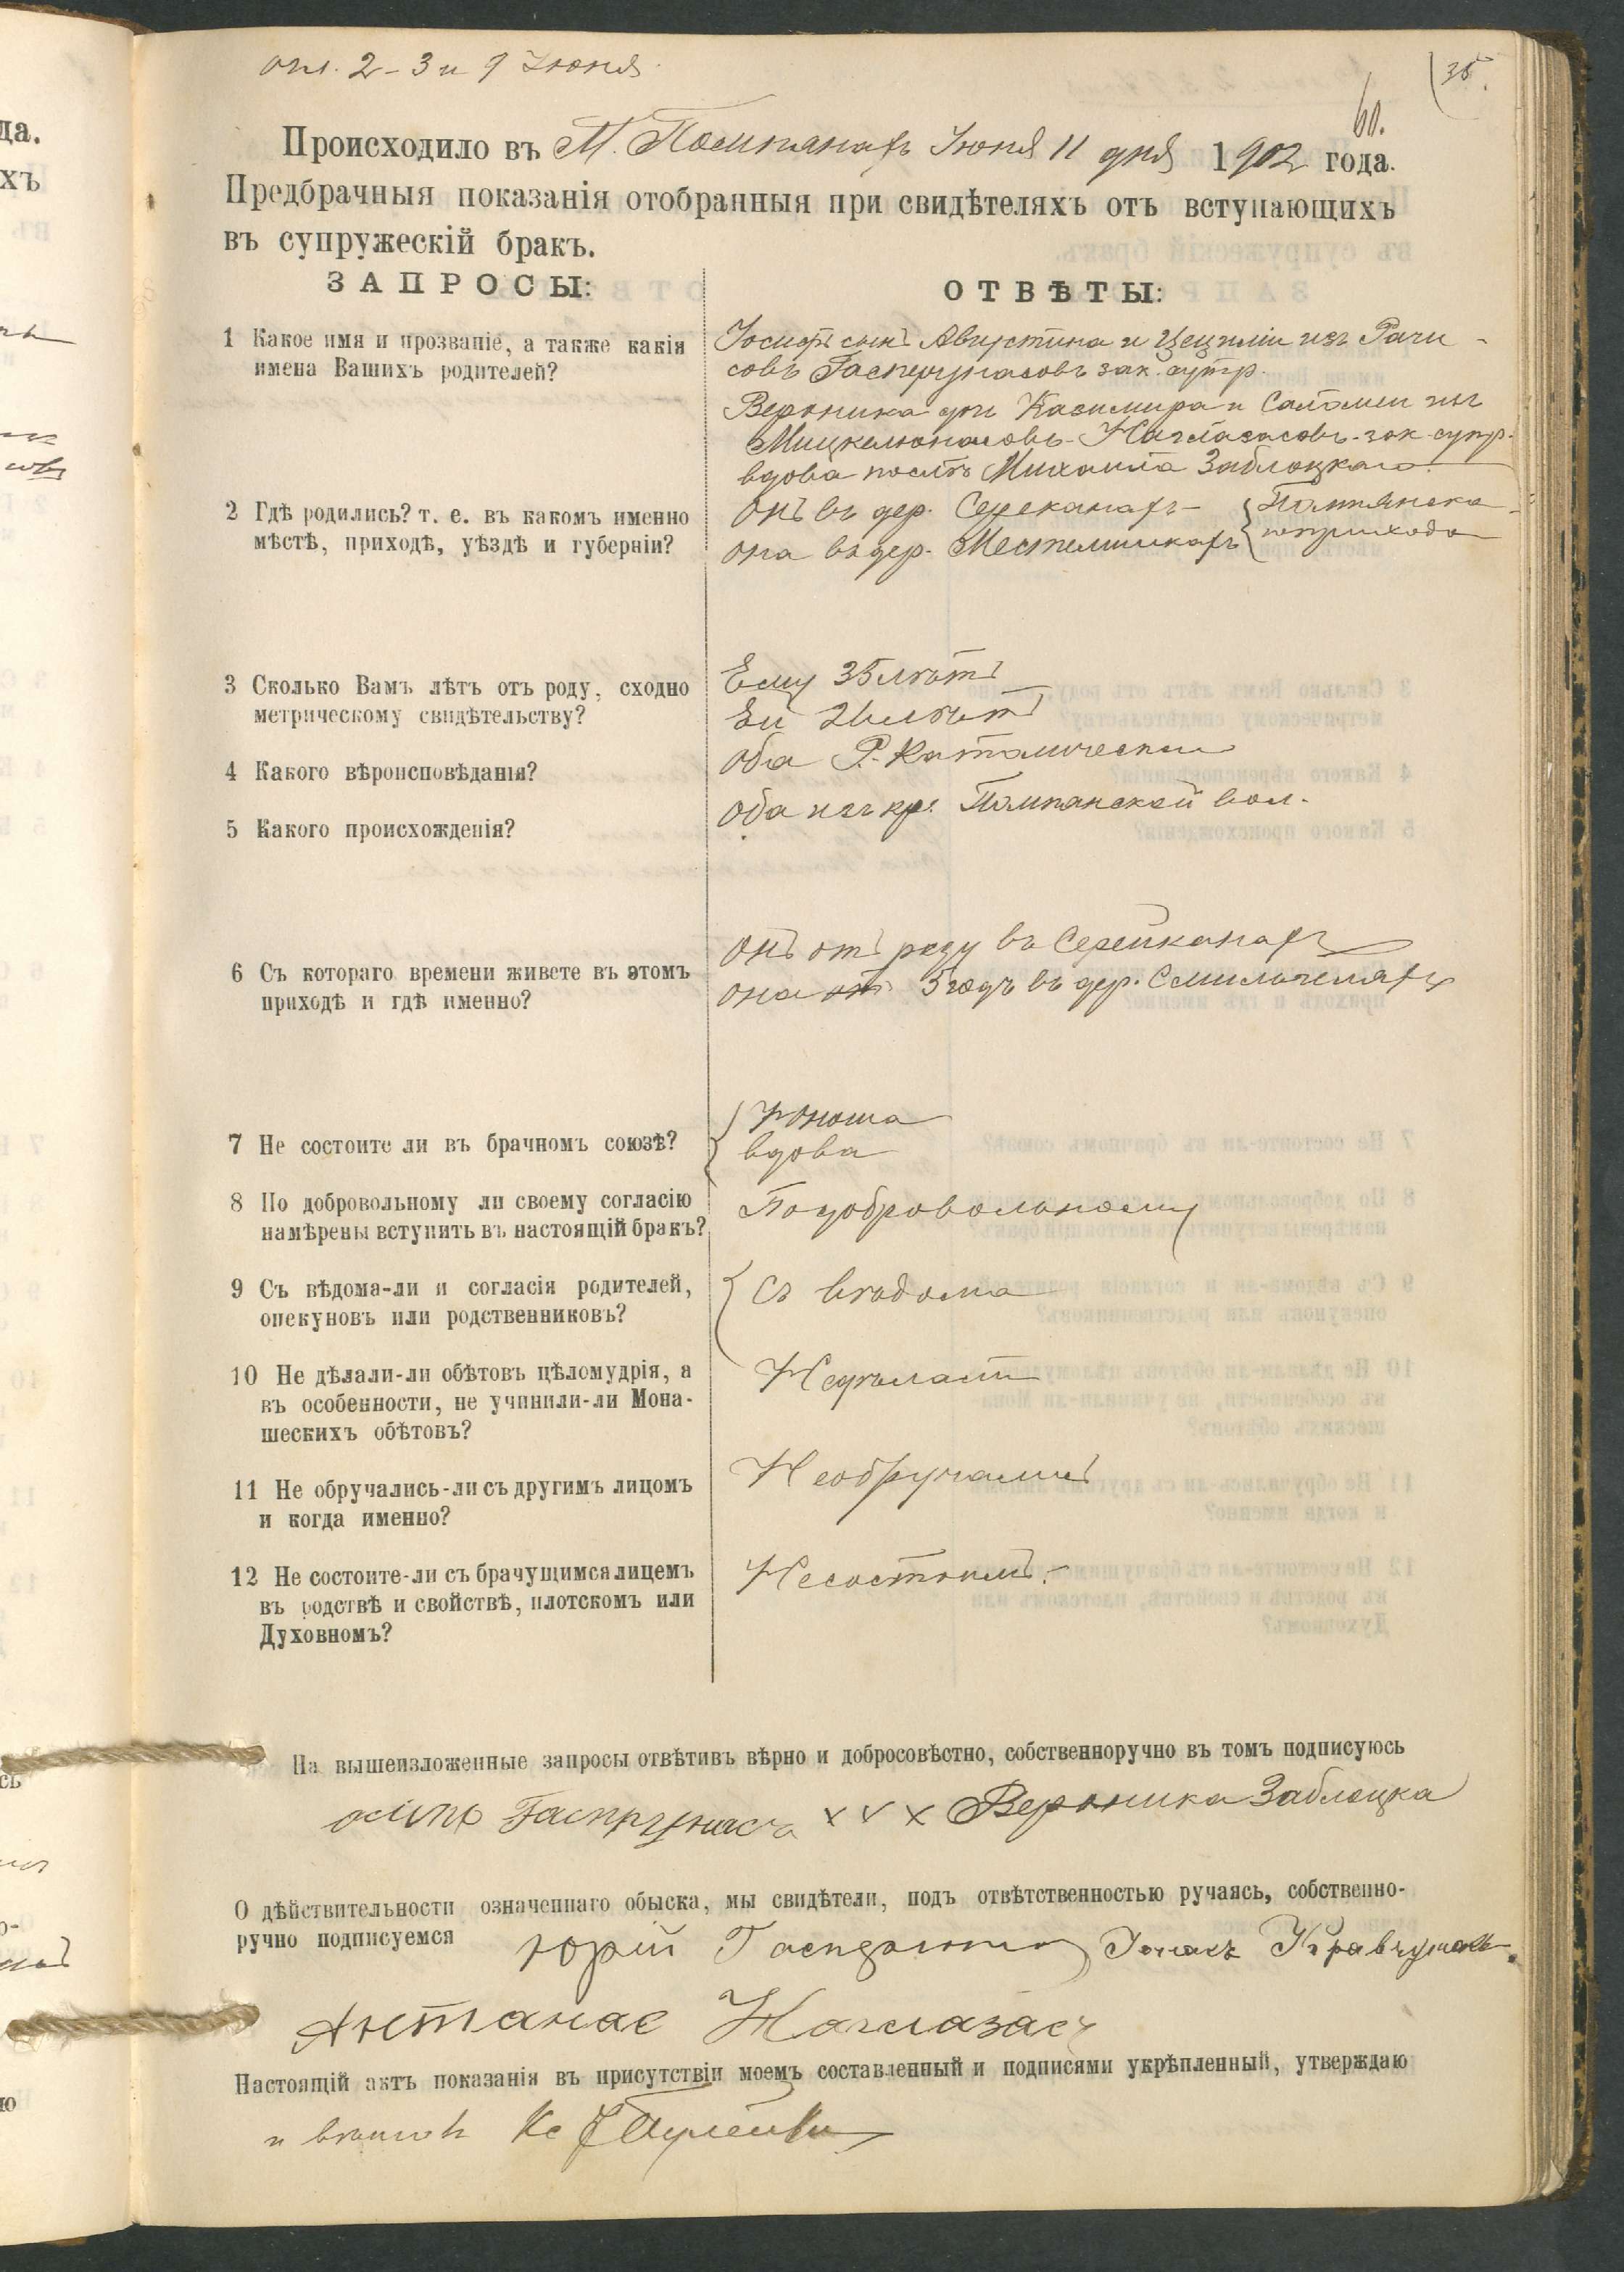 огл. 2-3 и 9 Іюня.
35.
60.
Происходило въ М. Помпянахъ Іюня 11 дня 1902 года.
Предбрачныя показанія отобранныя при свидѣтеляхъ отъ вступающихъ
въ супружескій бракъ.
ЗАПРОСЫ:
ОТВѢТЫ:
1 Какое имя и прозваніе, а также какія
имена Вашихъ родителей?
Іосифъ сынъ Августина и Цециліи изъ Рачи-
совъ Гасперунасовъ зак. супр.
Вероника дочь Казимира и Саломеи изъ
Мицкелюнасовъ Нагласасовъ зак. супр.
вдова послѣ Михаила Заблоцкаго
2 Гдѣ родились? т. е. въ какомъ именно
мѣстѣ, приходѣ, уѣздѣ и губерніи?
онъ въ дер. Сереканахъ Помпянска-
она въ дер. го прихода
3 Сколько Вамъ лѣтъ отъ роду, сходно
метрическому свидѣтельству?
Ему 35 лѣтъ
Ей лѣтъ
4 Какого вѣроисповѣданія?
Оба Р. Католическаго
5 Какого происхожденія?
Оба изъ кр. Помпянской вол.
6 Съ котораго времени живете въ этомъ
приходѣ и гдѣ именно?
Онъ отъ роду въ Серейканахъ
она 5 годъ въ дер. Смильгеляхъ
7 Не состоите ли въ брачномъ союзѣ?
Юноша
вдова
8 По добровольному ли своему согласію
намѣрены вступить въ настоящій бракъ?
По добровольному
9 Съ вѣдома-ли и согласія родителей,
опекуновъ или родственниковъ?
Съ вѣдома
10 Не дѣлали-ли обѣтовъ цѣломудрія, а
въ особенности, не учинили-ли Мона-
шескихъ обѣтовъ?
Не дѣлали
11 Не обручались-ли съ другимъ лицомъ
и когда именно?
Не обручались
12 Не состоите-ли съ брачущимся лицемъ
въ родствѣ и свойствѣ, плотскомъ или
Духовномъ?
Не состоимъ.
На вышеизложенные запросы отвѣтивъ вѣрно и добросовѣстно, собственноручно въ томъ подписуюсь
осипъ Гаспрунасъ ххх Вероника Заблоцка
О дѣйствительности означеннаго обыска, мы свидѣтели, подъ отвѣтственностью ручаясь, собственно-
ручно подписуемся Юрій Игнасъ Кравчунасъ.
Антанас Нагглазасъ
Настоящій актъ показанія въ присутствіи моемъ составленный и подписями укрѣпленный, утверждаю
и Кс